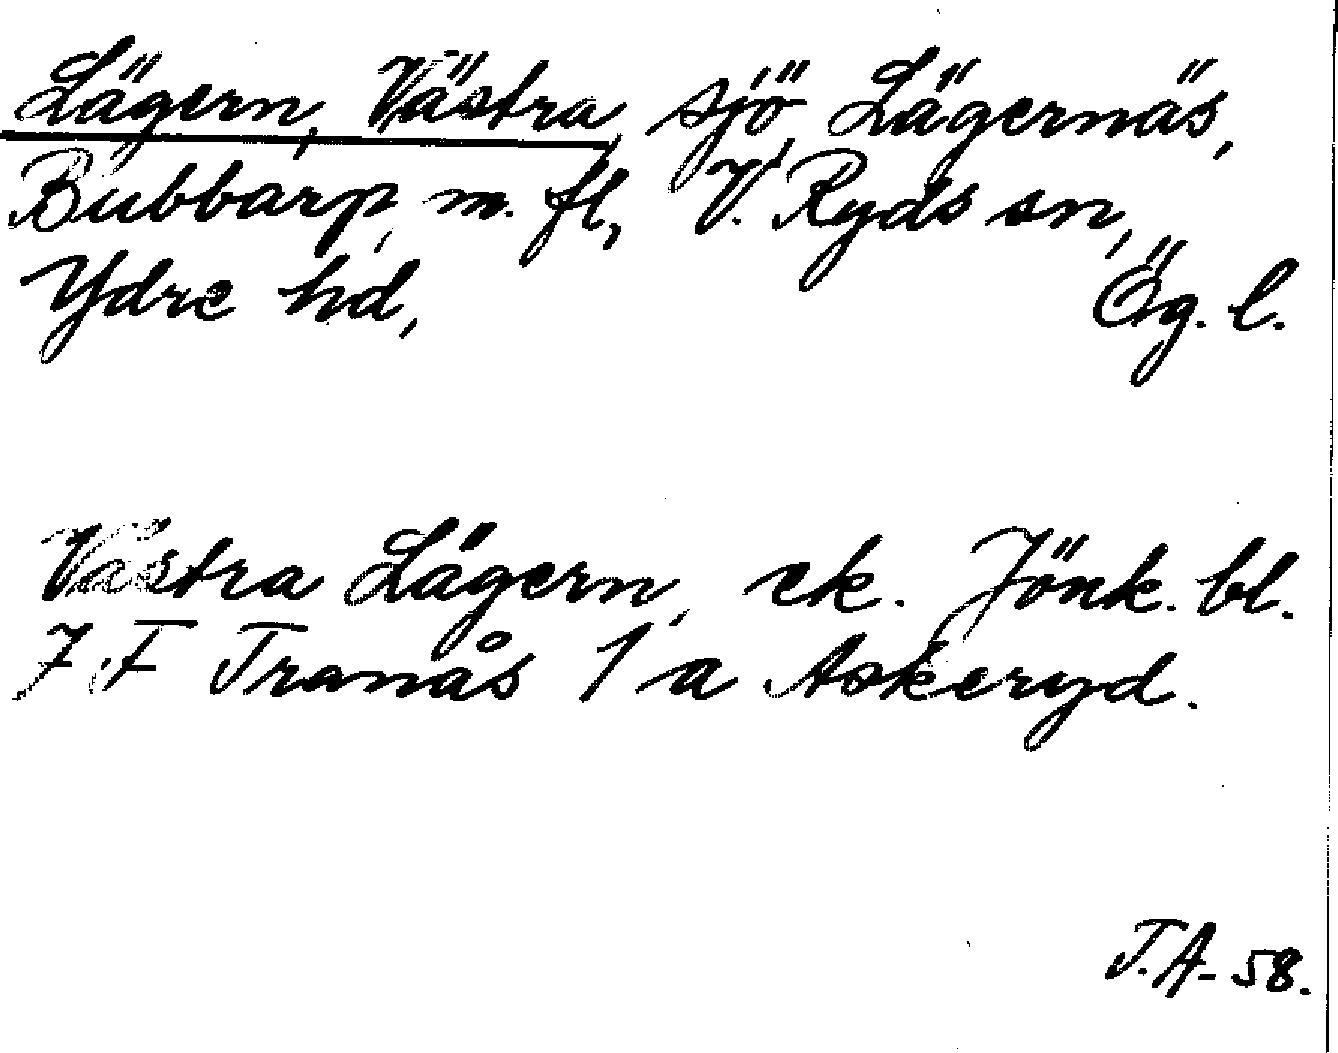 Lägern, Västra, sjö, Lägernäs,
Bubbarp, m. fl, V. Ryds sn,
Ydre hd, Ög. l.
Västra Lägern, ek. Jönk. bl.
7 F Tranås 1 a Askeryd.
T.A- 58.